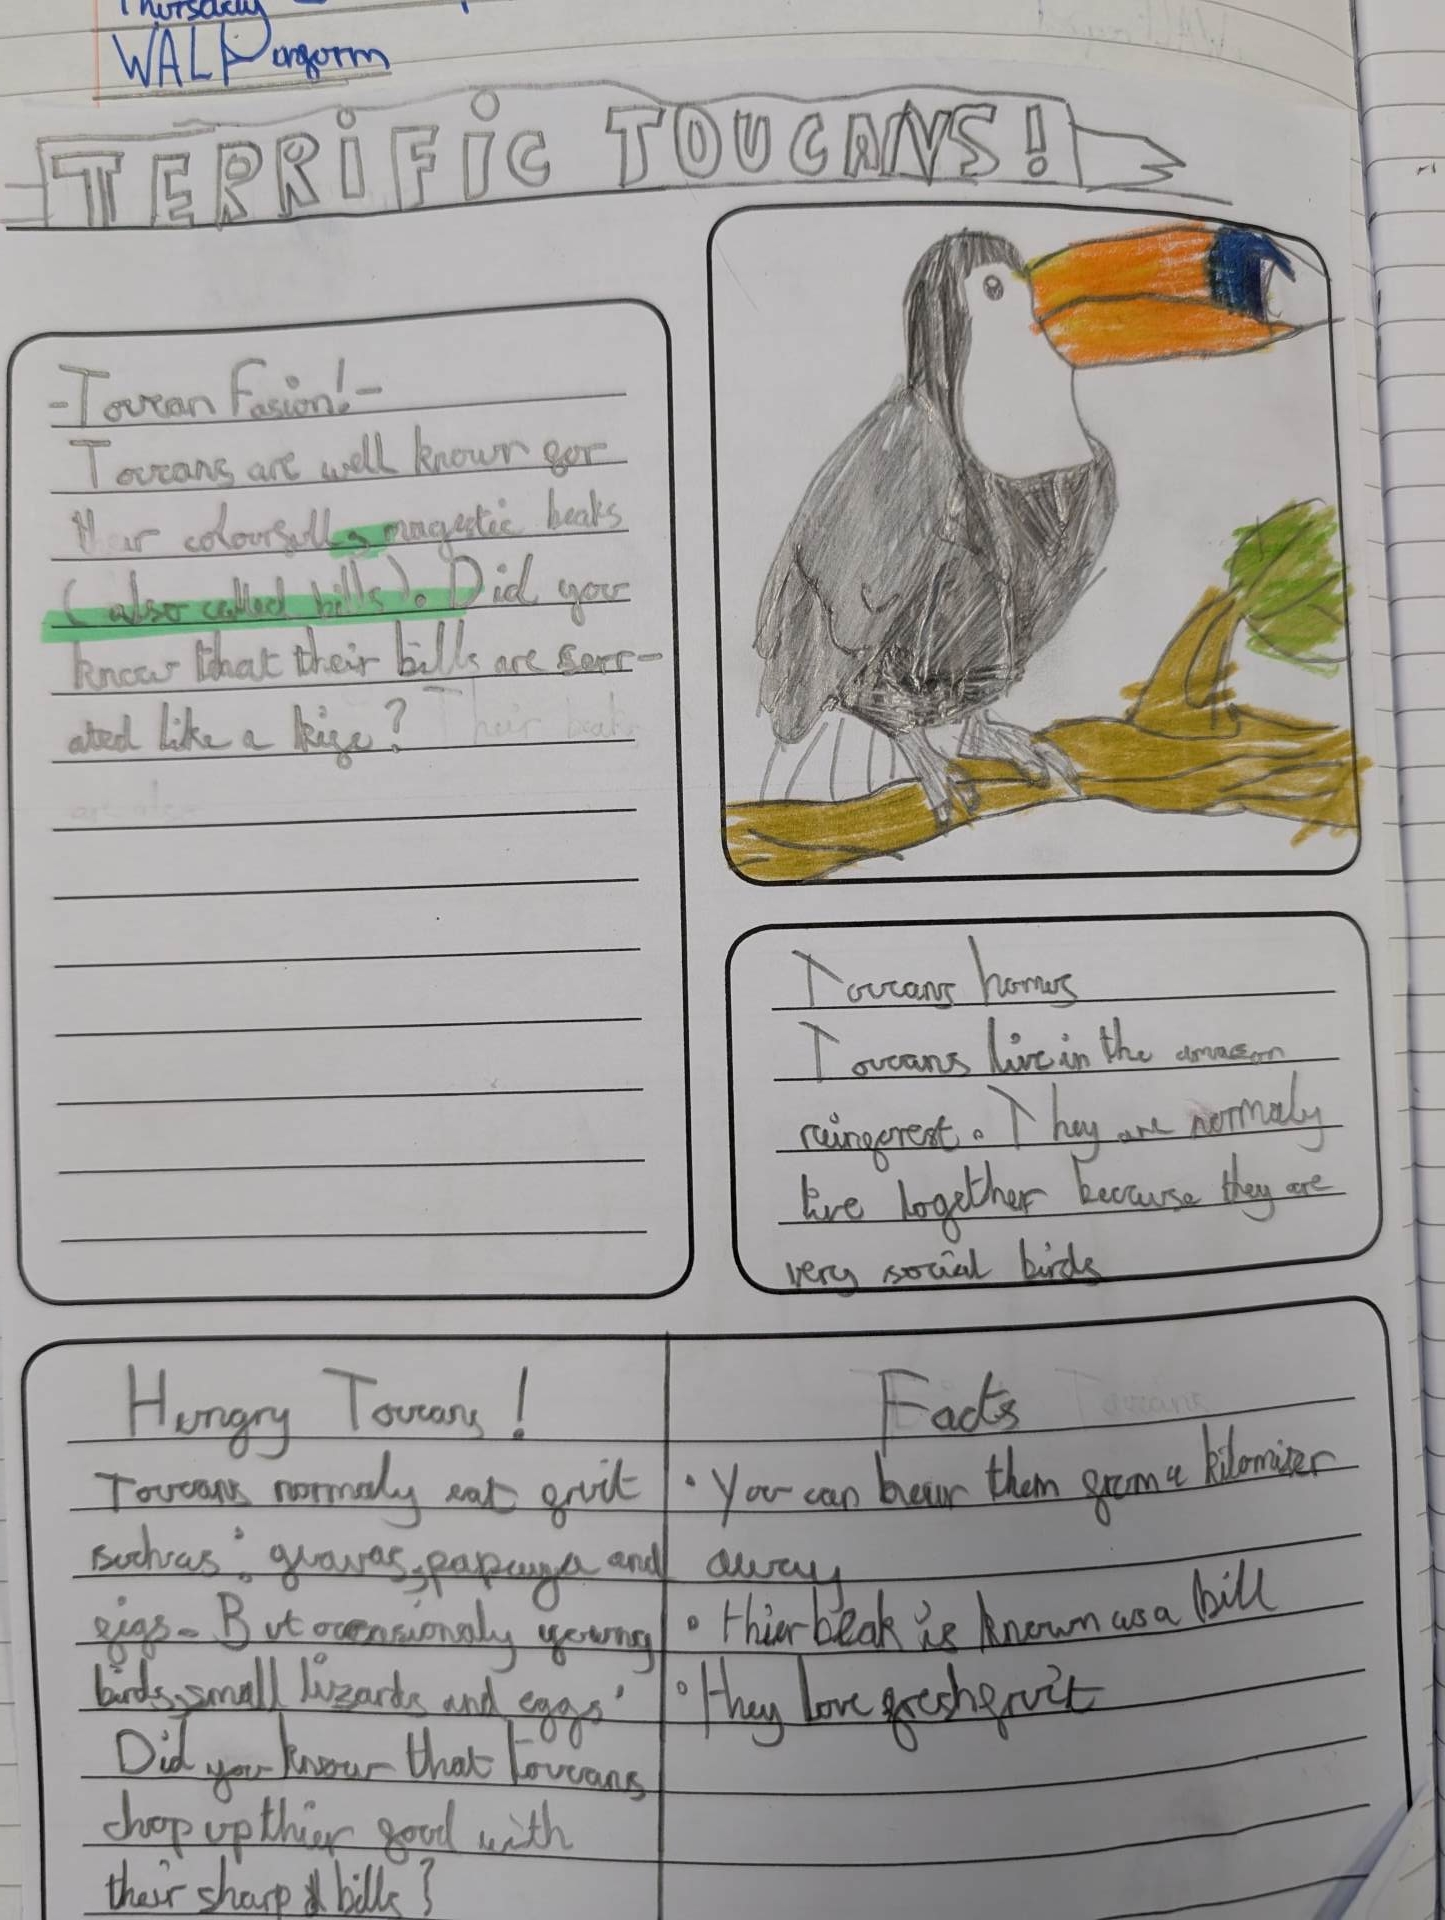 Thursday
WALT inform
TERRiFiC TOUCANS!
-Toucan Fasion!-
Toucans are well known for
their colourfull, magestic beaks
(also called bills). Did you
know that their bills are serr-
ated like a kife? Their beak
are also
Toucans homes
Toucans live in the amazon
rainforest. They are normaly
live together because they are
very social birds
Hungry Toucans!
Toucans normaly eat fruit
such as: guavas, papaya and
figs. But occasionaly young
birds, small lizards and eggs.
Did you know that toucans
chop up thier food with
their sharp bills?
Facts
• You can hear them from a kilomiter
away
• thier beak is known as a bill
• they love fresh fruit